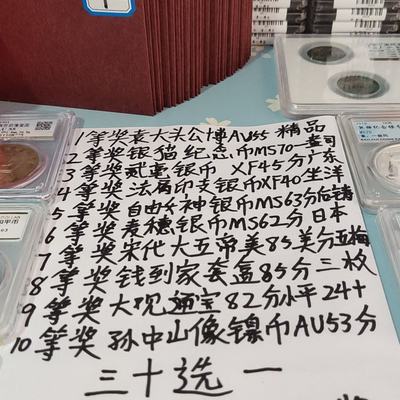 1等奖袁大头公博AU55 精品
2等奖银猫纪念币MS70一盎司
3等奖贰毫银币 XF45分广东
4等奖法属印支银币XF40坐洋
5等奖自由女神银币MS63分后铸
6等奖麦穗银币MS62分日本
7等奖宋代大五帝美85美分五梅
8等奖钱到家套盒85分三枚
9等奖大观通宝82分小平24+
10等奖孙中山像镍币AU53分
三十选一